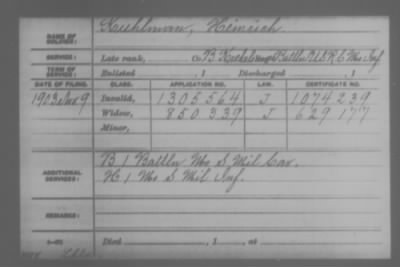 NAME OF SOLDIER: Kuehlman, Heinrich
SERVICE: Late rank, Co. B, Battln U.S.R.C. Mo Inf.
TERM OF SERVICE: Enlisted , 1 Discharged , 1
DATE OF FILING. CLASS. APPLICATION NO. LAW. CERTIFICATE NO.
1903 9 Invalid, 1305564 J 1074239
Widow, 850339 J 629177
Minor,
ADDITIONAL SERVICES: B 1 Battln Mo S Mil Cav.
H 1 Mo S Mil Inf.
REMARKS:
Died , 1 , at